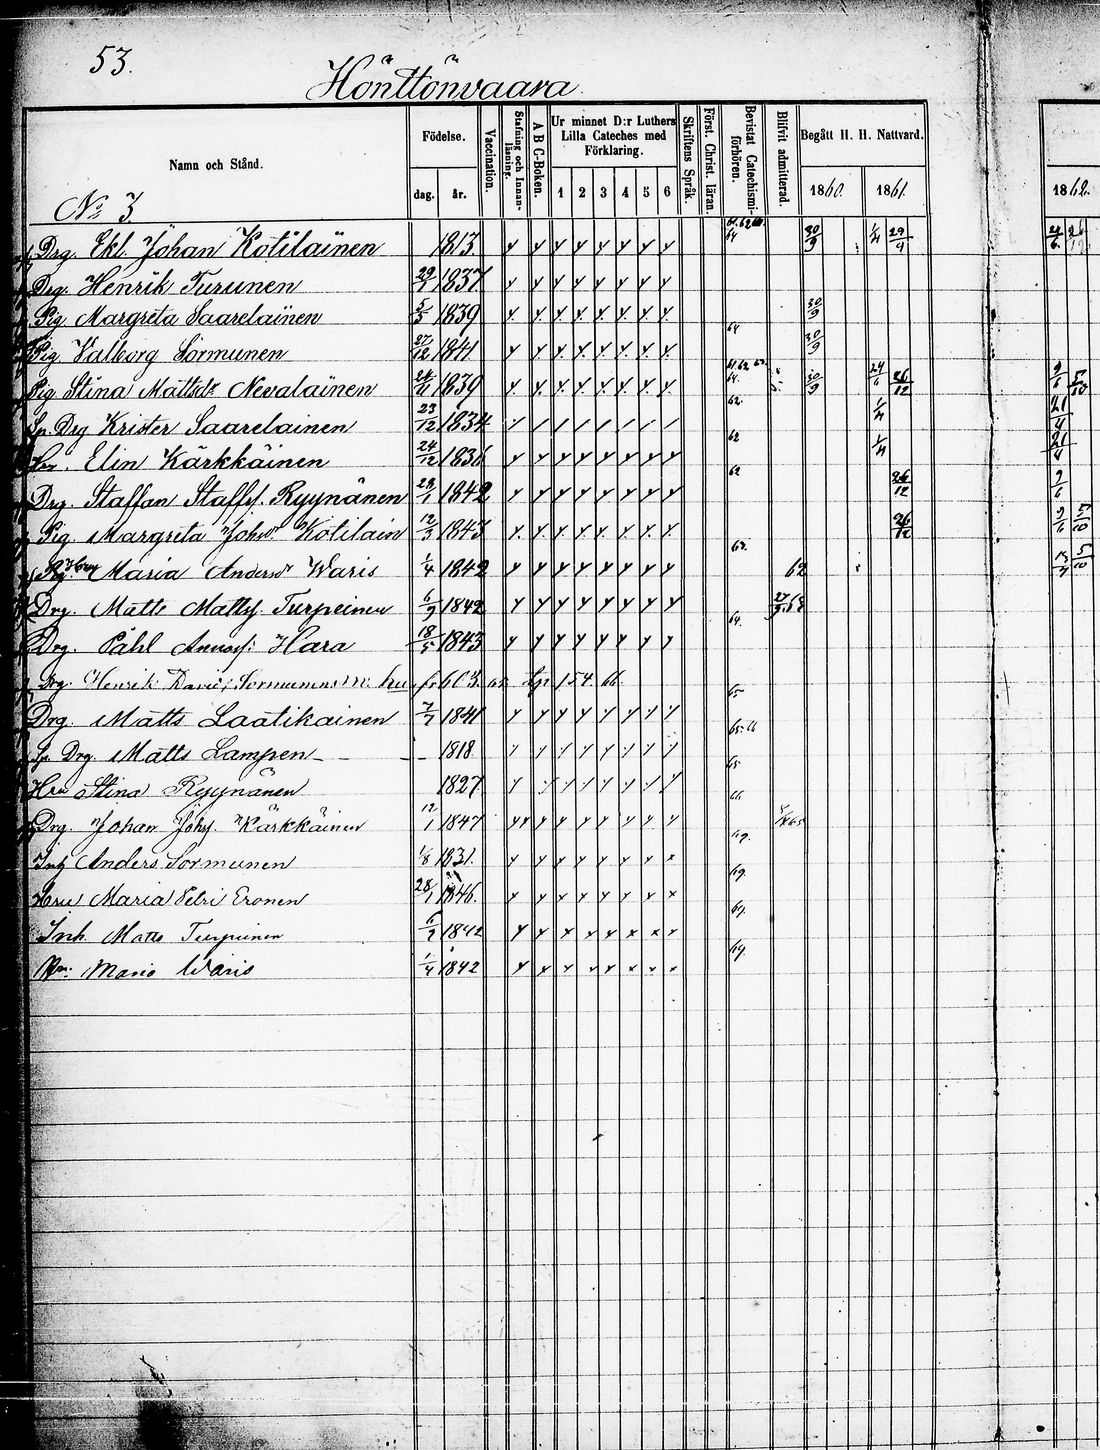 53.
Hönttönvaara
Namn och Stånd.
Födelse.
dag. år.
Vaccination.
Stafning och Innanläsning.
A B C-Boken.
Ur minnet D:r Luthers Lilla Cateches med Förklaring.
1 2 3 4 5 6
Skriftens Språk.
Först. Christ. läran.
Bevistat Catechismiförhören.
Blifvit admitterad.
Begått H. H. Nattvard.
1860. 1861. 1862.
No 3.
Drg. Ekl. Johan Kotilainen 1813. 30/9 29/4
Drg. Henrik Turunen 1837
Pig. Margreta Saarelainen 5/3 1839 30/9
Pig. Valborg Sormunen 27/12 1841 64 30/9
Pig Stina Mattsdr Nevalainen 24/11 1839 30/9 24/6 26/12 9/6 5/10
Sp. Drg Krister Saarelainen 23/12 1834 62. 21/4
Hu. Elin Kärkkäinen 24/12 1836 62 21/4
Drg. Staffan Staffs. Ryynänen 28/1 1842 62 26/12 9/6
Pig. Margreta Johsdr Kotilain 12/3 1843 26/12 9/6 5/10
Maria Andersdr Waris 1/4 1842 63. 62 5/10
Drg. Matts Matts. Turpeinen 6/9 1842
Drg. Påhl Hara 18/5 1843 64.
Drg. Henrik Sormunen m. hu fr 603. 65. 154. 66.
Drg. Matts Laatikainen 7/7 1841 65
Sp. Drg. Matts Lampen 1818 65. 66
Hru Stina Ryynänen 1827. 65
Drg. Johan Johs. Kärkkäinen 12/1 1847 66
Inh Anders Sormunen 1/8 1831. 69.
Hru Maria Petri Eronen 28/1 1846. 69
Inh Matts Turpeinen 6/9 1842 69.
Maria Waris 1/4 1842 69.